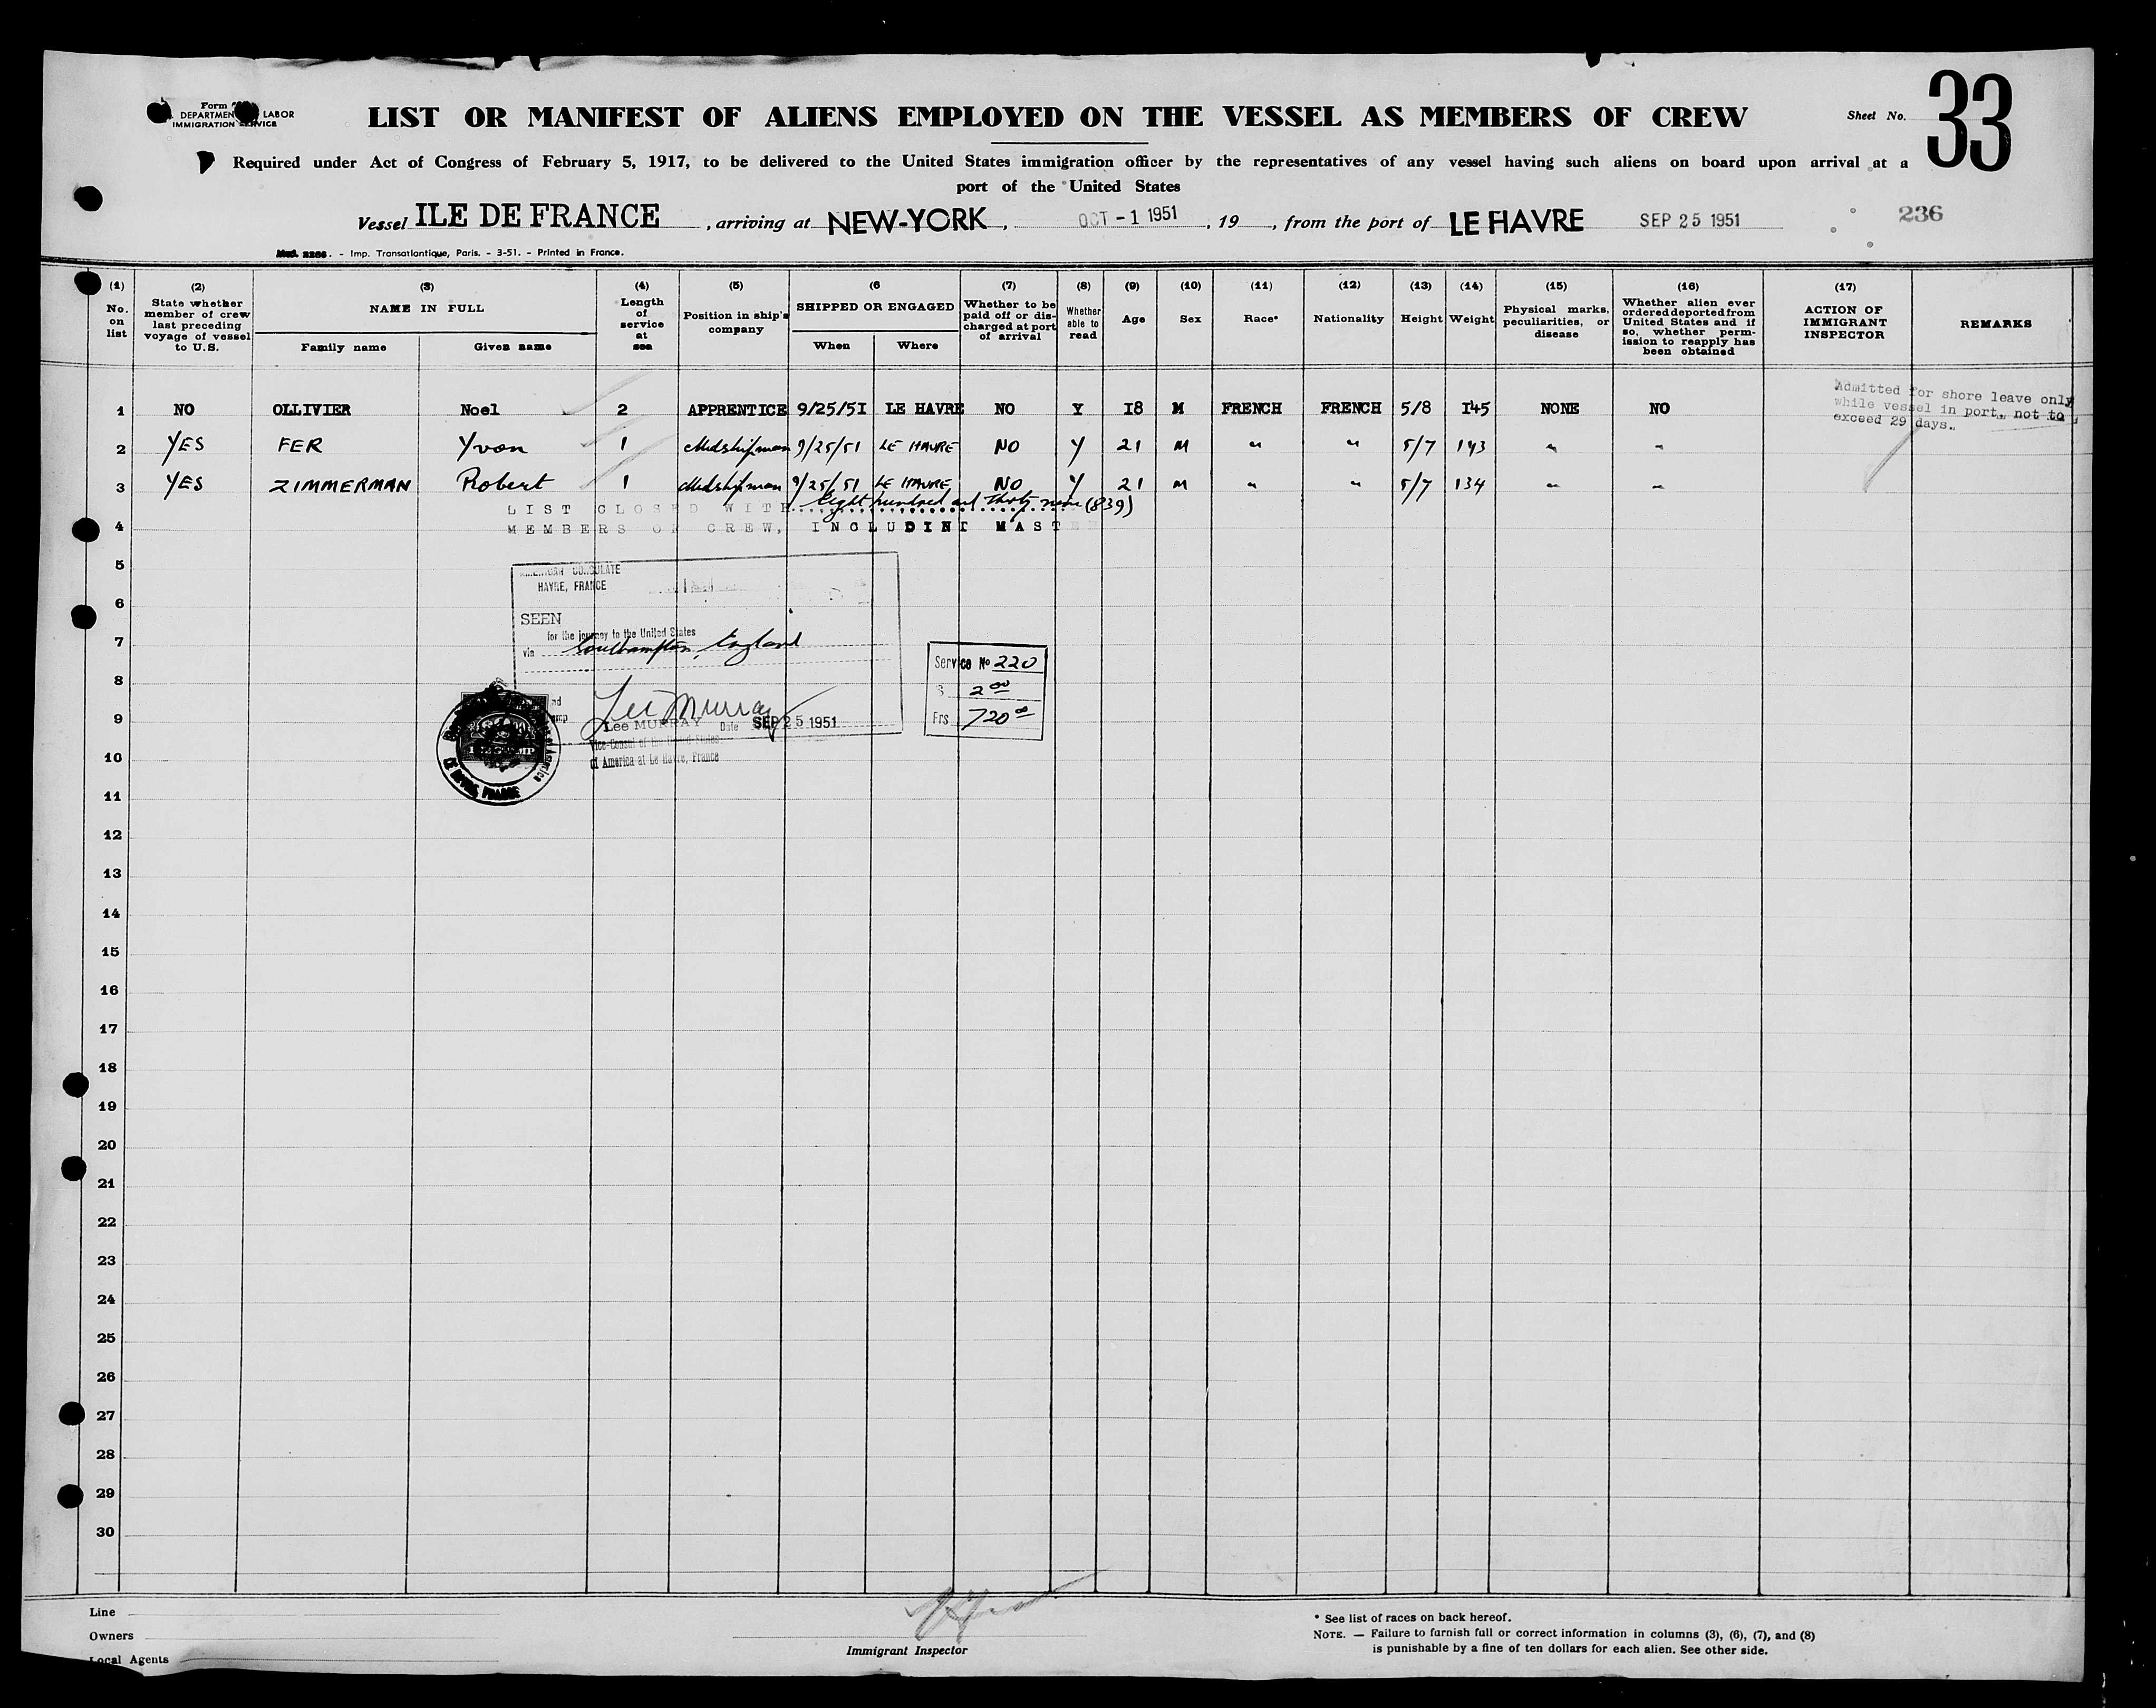 Form
DEPARTMEN LABOR
IMMIGRATION SERVICE
LIST OR MANIFEST OF ALIENS EMPLOYED ON THE VESSEL AS MEMBERS OF CREW
Sheet No. 33
Required under Act of Congress of February 5, 1917, to be delivered to the United States immigration officer by the representatives of any vessel having such aliens on board upon arrival at a
port of the United States
Vessel ILE DE FRANCE , arriving at NEW-YORK , OCT - 1 1951 , 19 , from the port of LE HAVRE SEP 25 1951 236
Mod. 2286. - Imp. Transatlantique, Paris. - 3-51. - Printed in France.
(1) No. on list
(2) State whether member of crew last preceding voyage of vessel to U.S.
(3) NAME IN FULL Family name Given name
(4) Length of service at sea
(5) Position in ship's company
(6 SHIPPED OR ENGAGED When Where
(7) Whether to be paid off or dis-charged at port of arrival
(8) Whether able to read
(9) Age
(10) Sex
(11) Race*
(12) Nationality
(13) Height
(14) Weight
(15) Physical marks, peculiarities, or disease
(16) Whether alien ever ordered deported from United States and if so, whether perm-ission to reapply has been obtained
(17) ACTION OF IMMIGRANT INSPECTOR
REMARKS
1 NO OLLIVIER Noel 2 APPRENTICE 9/25/51 LE HAVRE NO Y 18 M FRENCH FRENCH 5/8 145 NONE NO
Admitted for shore leave only
while vessel in port, not to
exceed 29 days.
2 YES FER Yvon 1 Midshipman 9/25/51 LE HAVRE NO Y 21 M " " 5/7 143 " "
3 YES ZIMMERMAN Robert 1 Midshipman 9/25/51 LE HAVRE NO Y 21 M " " 5/7 134 " "
LIST CLOSED WITH eight hundred and thirty nine (839)
4 MEMBERS OF CREW, INCLUDINT MASTE
5
AMERICAN CONSULATE
HAVRE, FRANCE
6
SEEN
for the journey to the United States
7
via Southampton, England
Service No 220
8
$ 2 00
Lee Murray
9
Lee MURRAY Date SEP 25 1951
Frs 720 00
Vice-Consul of the United States
10
of America at Le Havre, France
LE HAVRE, FRANCE
11
12
13
14
15
16
17
18
19
20
21
22
23
24
25
26
27
28
29
30
Line
Owners
Local Agents
Immigrant Inspector
* See list of races on back hereof.
NOTE. — Failure to furnish full or correct information in columns (3), (6), (7), and (8)
is punishable by a fine of ten dollars for each alien. See other side.